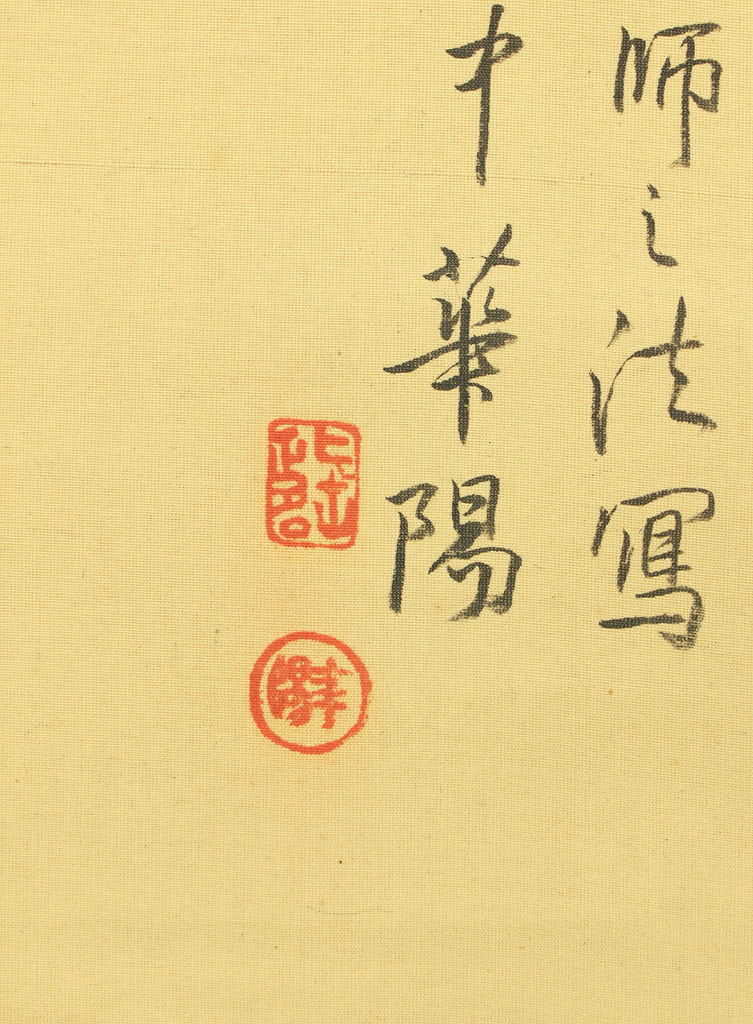 師之法寫
中華陽